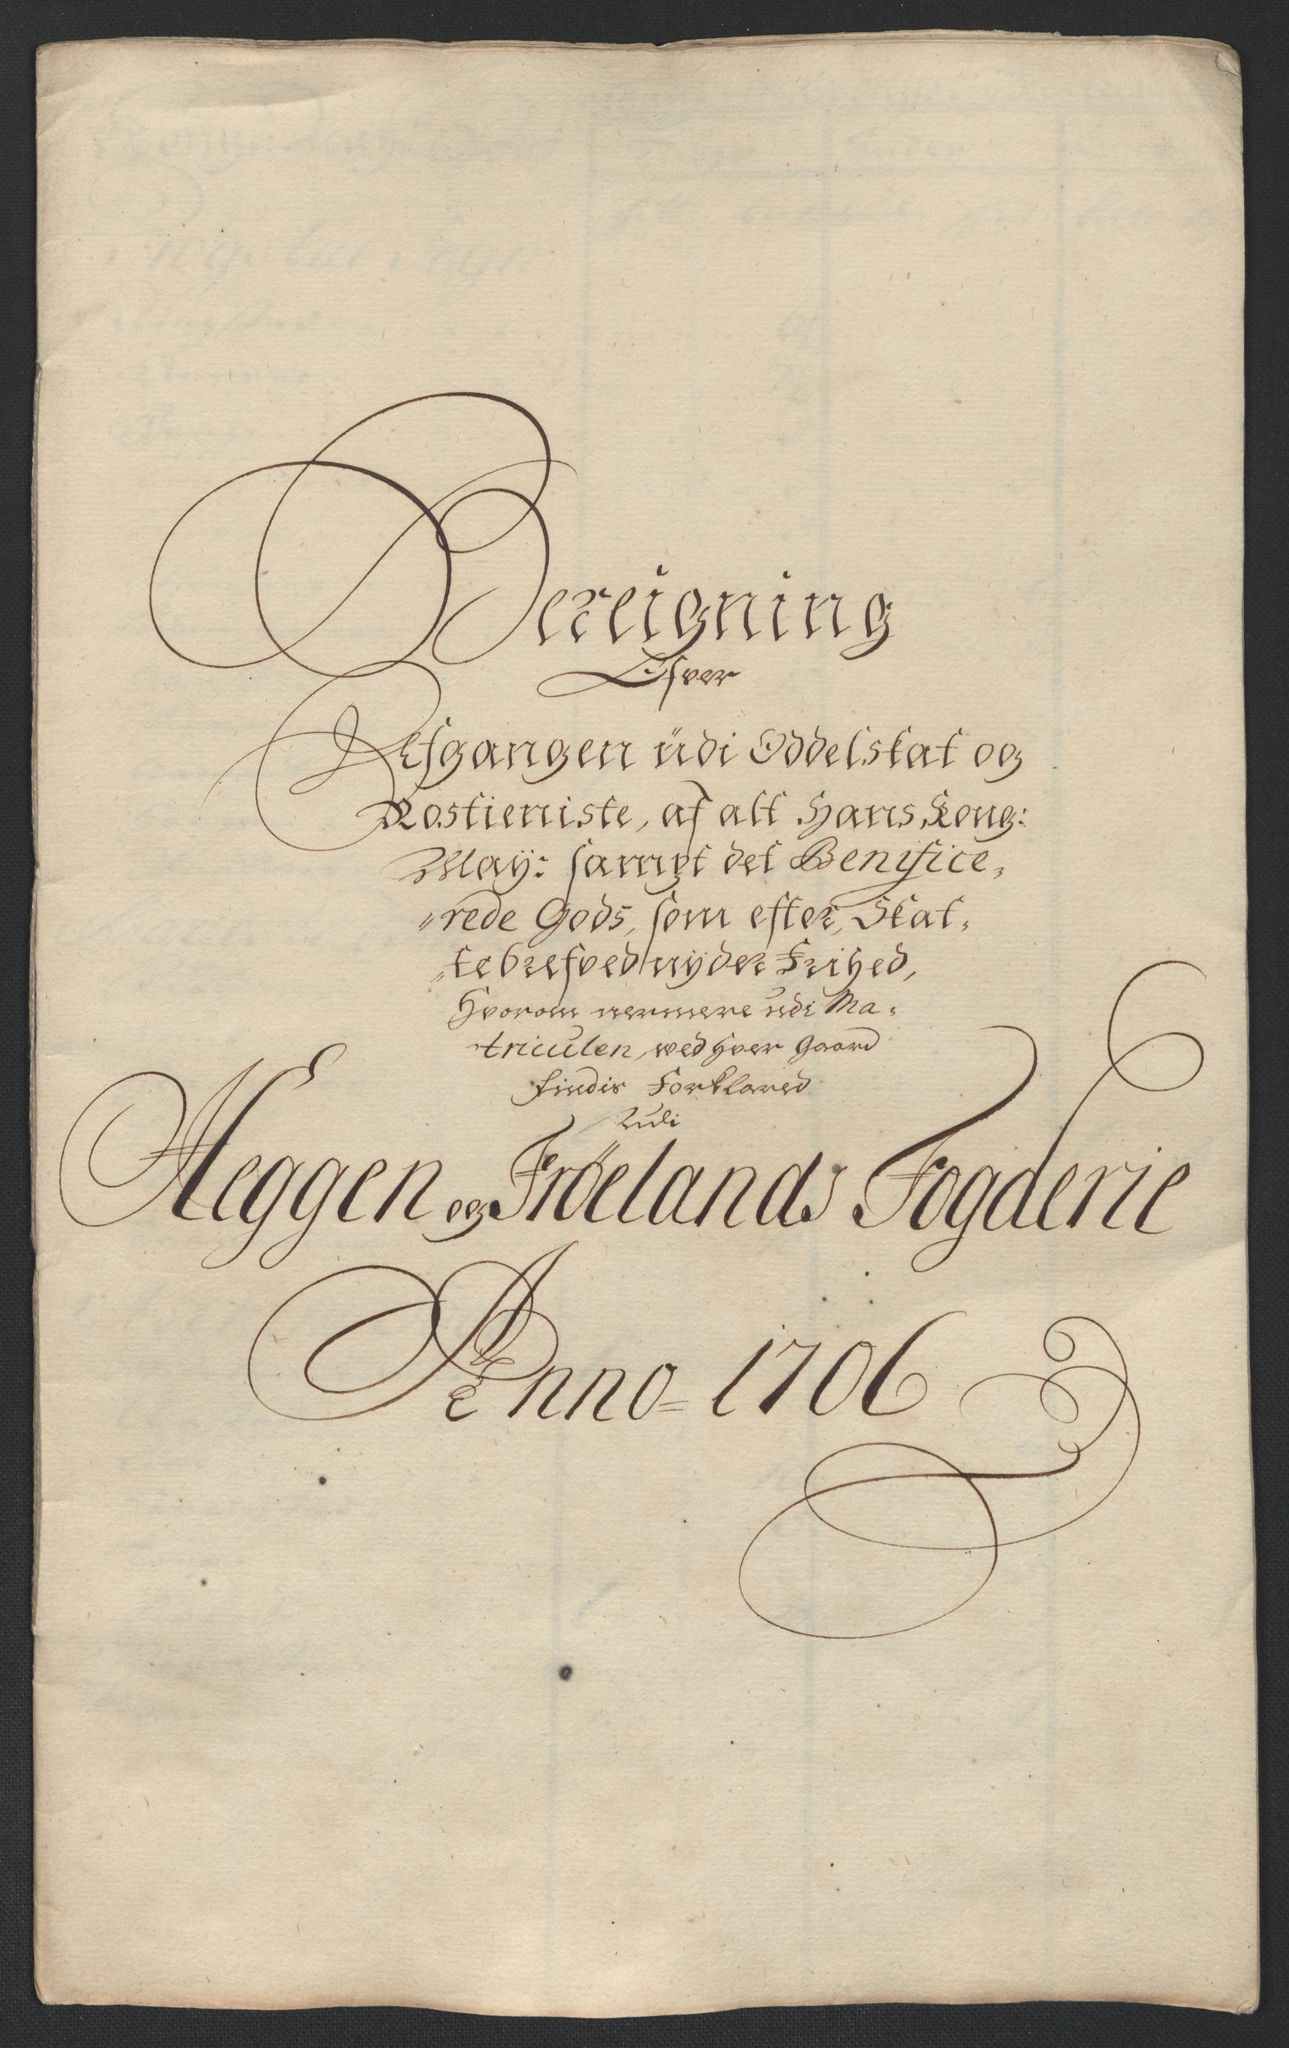 Bereigning
Ofver
Afgangen udi Oddelskat og
Rostieniste, af alt Hans Kong:
May: sampt det Benifice,
"rede Gods, som efter, Skat,
"tebrefved nyder Frihed,
Hvorom nermere udi Ma,
triculen, ved hver Gaard
findis Forklared
udi
Heggen og Frøelands Fogderie
Anno = 1706